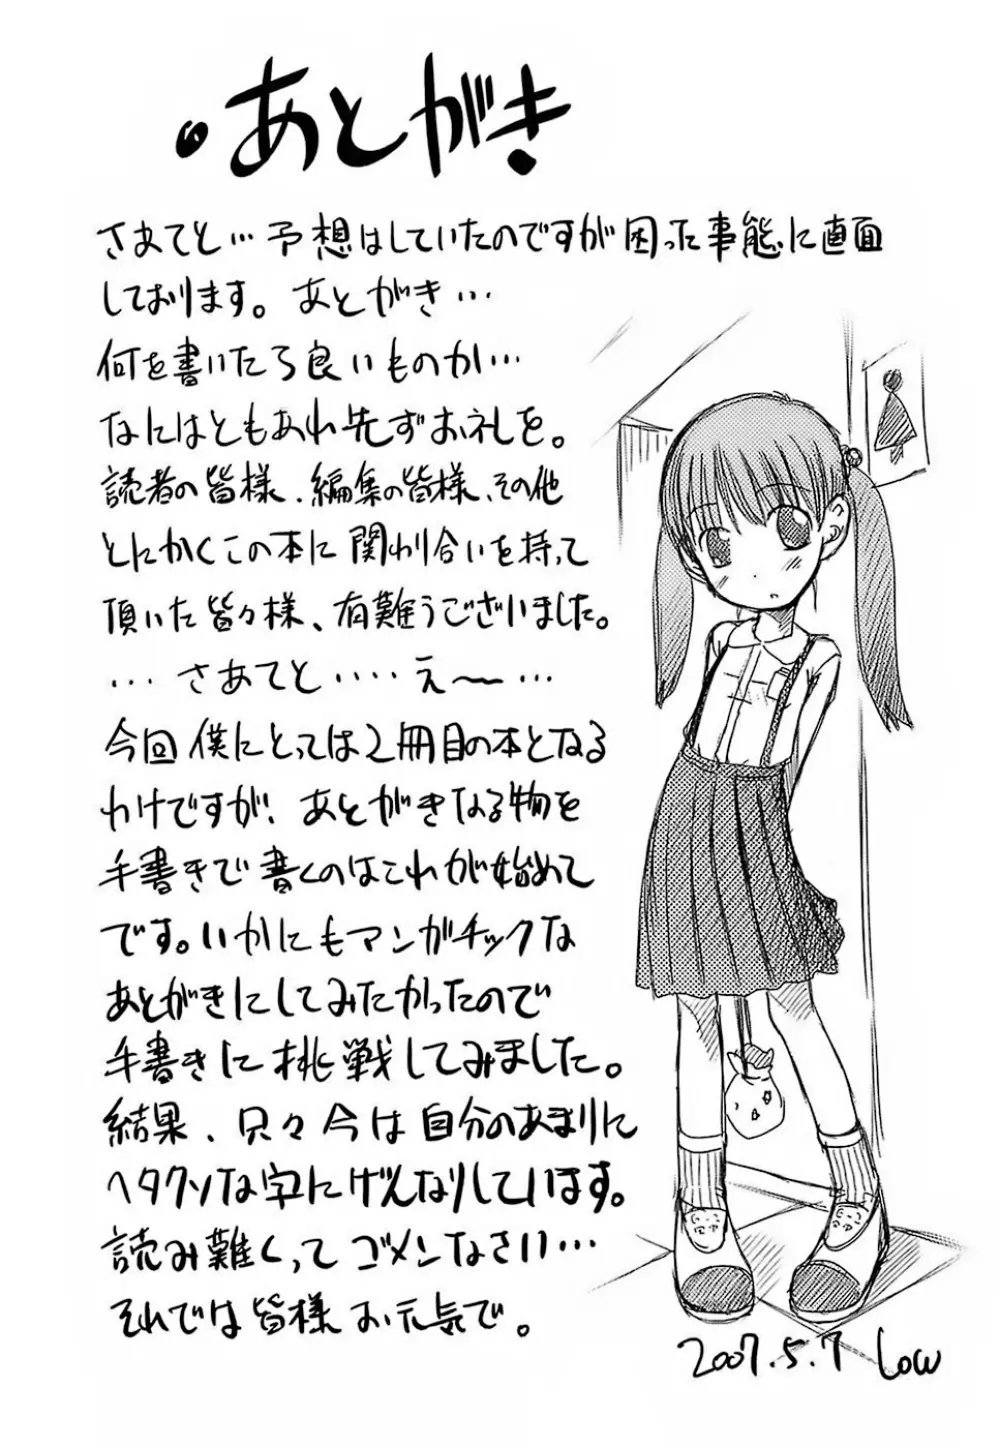 ・あとがき
さあてと…予想はしていたのですが困った事態に直面
しております。あとがき…
何を書いたら良いものか…
なにはともあれ先ずお礼を。
読者の皆様、編集の皆様、その他
とにかくこの本に関わり合いを持って
頂いた皆々様、有難うございました。
…さあてと‥‥え〜…
今回僕にとっては2冊目の本となる
わけですが、あとがきなる物を
手書きで書くのはこれが始めて
です。いかにもマンガチックな
あとがきにしてみたかったので
手書きに挑戦してみました。
結果、只々今は自分のあまりに
ヘタクソな字にげんなりしています。
読み難くってゴメンなさい…
それでは皆様お元気で。
2007.5.7 Low